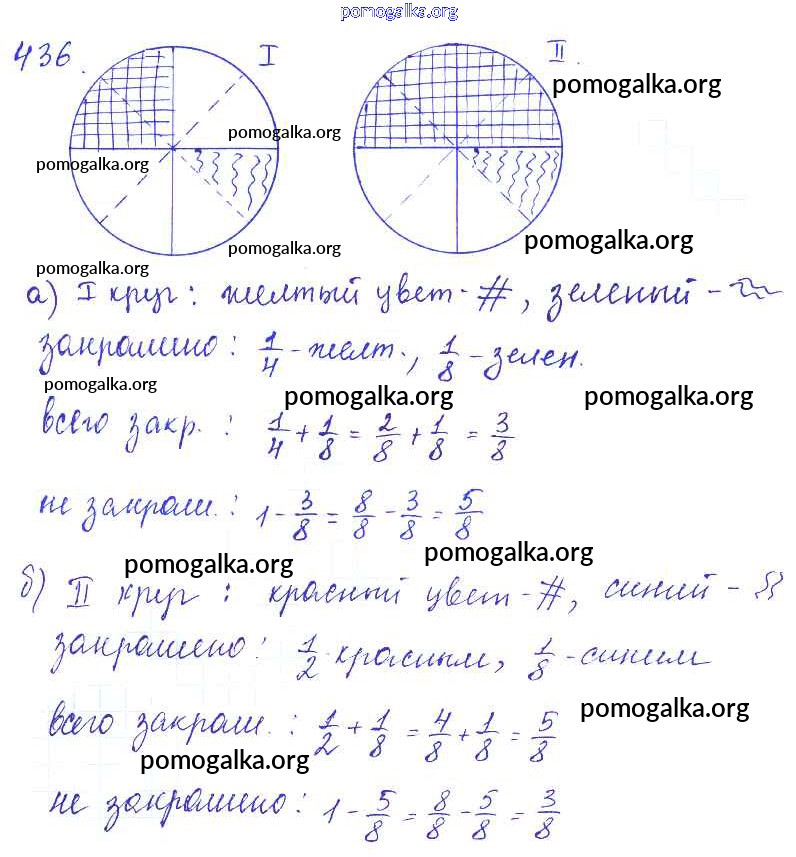 pomogalka.org
436. I II.
pomogalka.org
pomogalka.org
pomogalka.org
pomogalka.org
pomogalka.org
pomogalka.org
а) I круг: желтый цвет - #, зеленый -
закрашено: 1/4 - желт., 1/8 - зелен.
pomogalka.org
pomogalka.org pomogalka.org
всего закр.: 1/4 + 1/8 = 2/8 + 1/8 = 3/8
не закраш.: 1 - 3/8 = 8/8 - 3/8 = 5/8
pomogalka.org pomogalka.org
б) II круг: красный цвет - #, синий -
закрашено: 1/2 - красным, 1/8 - синим
pomogalka.org
всего закраш.: 1/2 + 1/8 = 4/8 + 1/8 = 5/8
pomogalka.org
не закрашено: 1 - 5/8 = 8/8 - 5/8 = 3/8